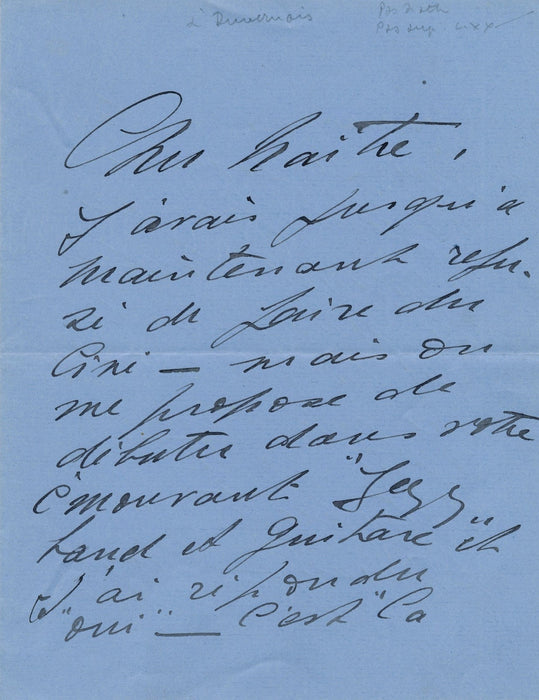 à Duvernois
Cher Maître,
J'avais jusqu'à
maintenant refu-
sé de faire du
Ciné — mais on
me propose de
débuter dans votre
émouvant "Jazz
band et Guitare" et
J'ai répondu
"oui" — C'est "la